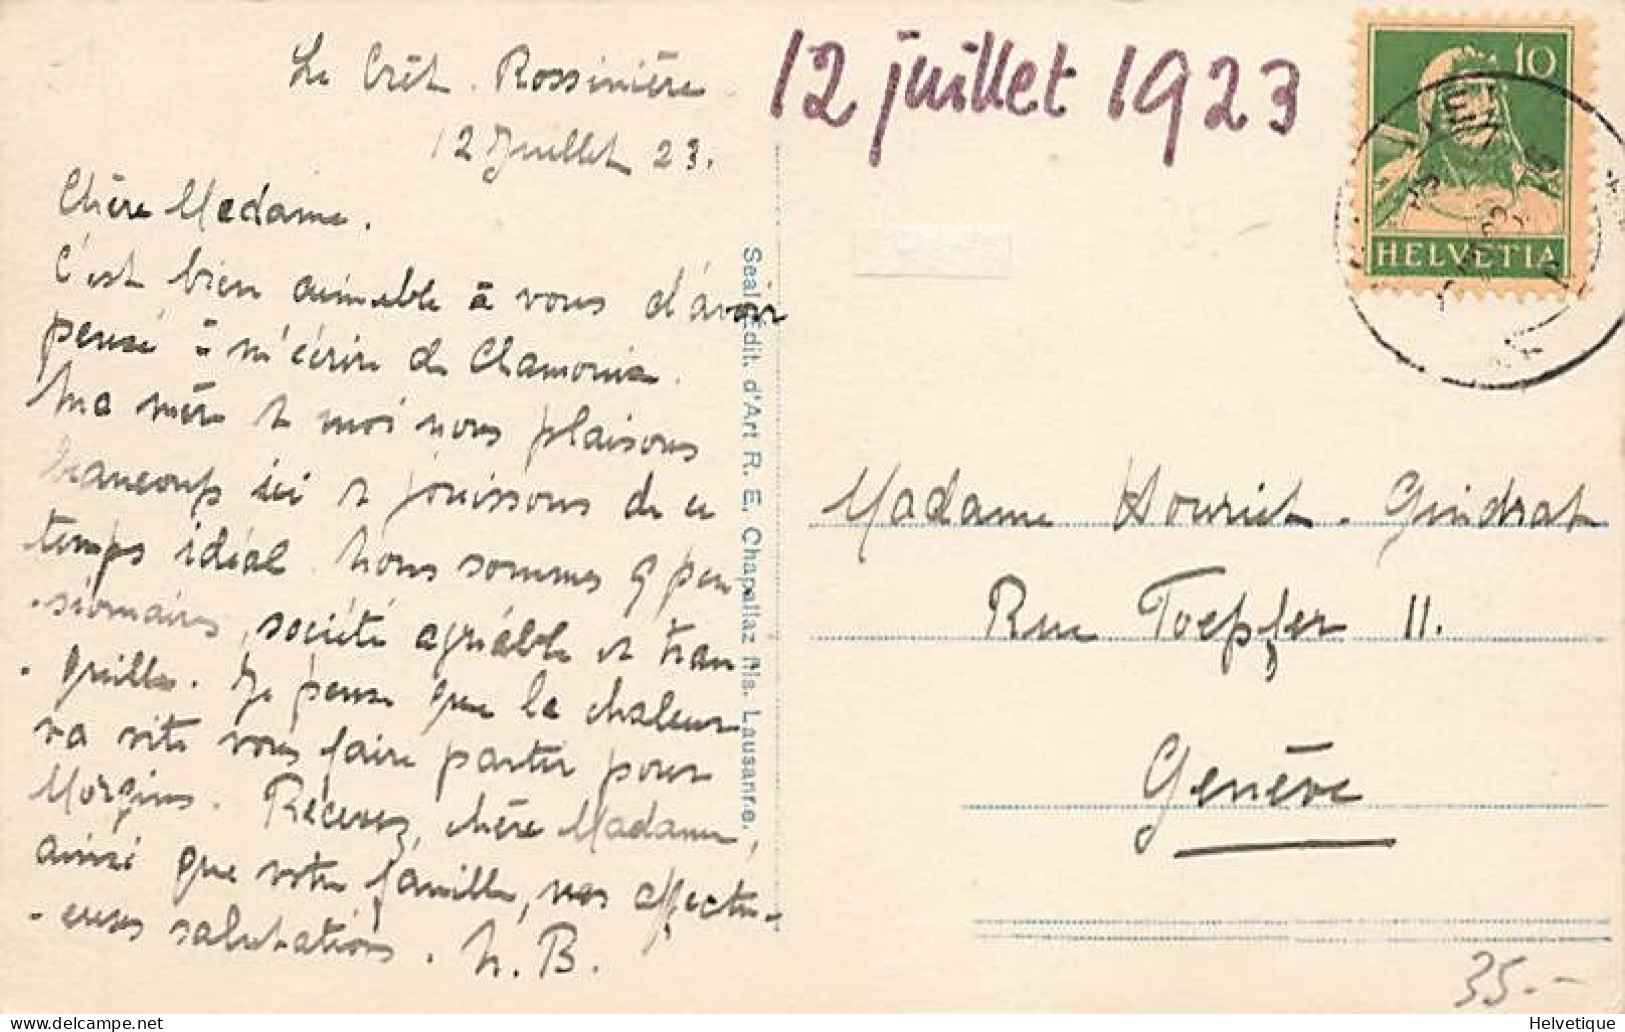 Le Crêt. Rossinière
12 Juillet 23.
Chère Madame.
C'est bien aimable à vous d'avoir
pensé à m'écrire de Chamonix.
Ma mère et moi nous plaisons
beaucoup ici et jouissons de ce
temps idéal. Nous sommes 9 pen
-sionnaires, société agréable et tran
-quille. Je pense que la chaleur
va vite vous faire partir pour
Morgins. Recevez, chère Madame,
ainsi que votre famille, nos affectu-
-euses salutations. N. B.
12 juillet 1923
10
HELVETIA
Seal Edit. d'Art R. E. Chapallaz fils. Lausanne.
Madame Houriet-Gindrat
Rue Toepfer 11.
Genève
35.-
Delcampe.net
Helvetique